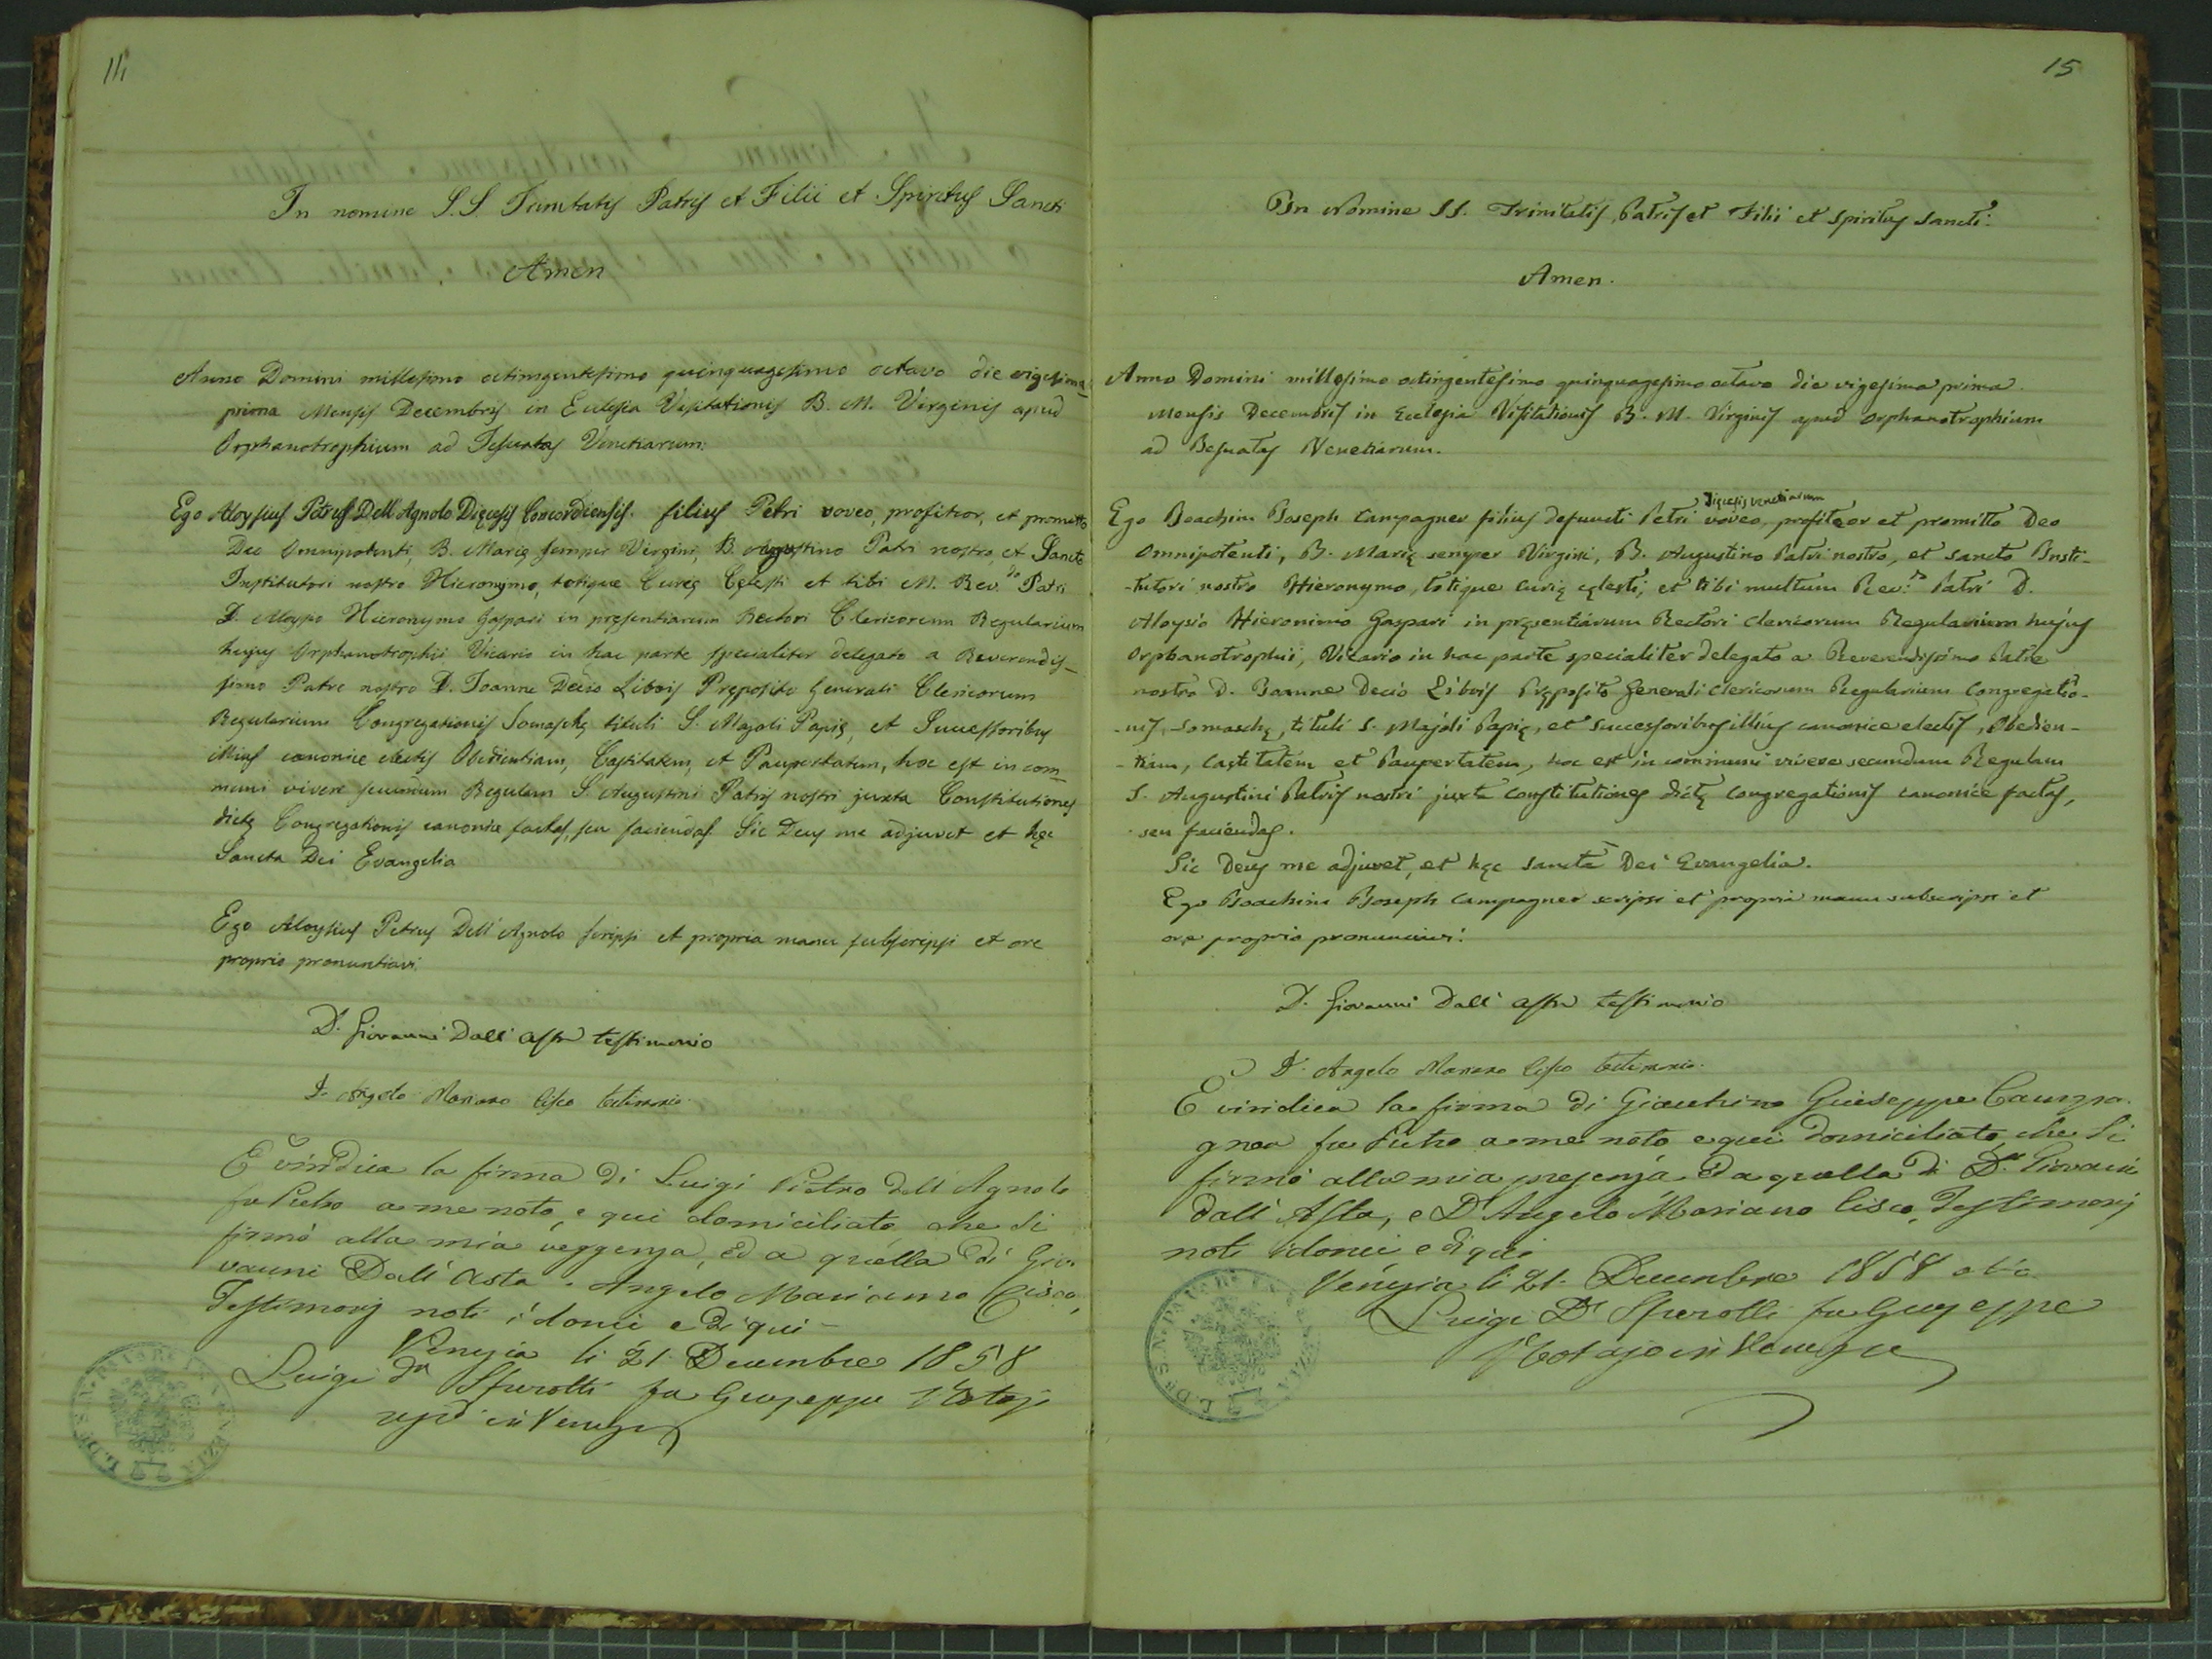 14
In nomine S.S. Trinitatis Patris et Filii et Spiritus Sancti
Amen
Anno Domini millesimo octingentesimo quinquagesimo octavo die vigesima
prima Mensis Decembris in Ecclesia Visitationis B. M. Virginis apud
Orphanotrophium ad Jesuatas Venetiarum:
Ego Aloysius Petrus Dell'Agnolo Dięcesis Concordiensis. filius Petri voveo, profiteor, et promitto
Deo Omnipotenti, B. Marię semper Virgini, B. Augustino Patri nostro, et Sancto
Institutori nostro Hieronymo, totique Curię Cęlesti et tibi M. Rev.do Patri
D. Aloysio Hieronymo Gaspari in pręsentiarum Rectori Clericorum Regularium
hujus Orphanotrophii Vicario in hac parte specialiter delegato a Reverendis-
simo Patre nostro D. Joanne Decio Libois Pręposito Generali Clericorum
Regularium Congregationis Somaschę tituli S. Majoli Papię, et Successoribus
illius canonice electis Obedientiam, Castitatem, et Paupertatem, hoc est in com-
muni vivere secundum Regulam S. Augustini Patris nostri juxta Constitutiones
dictę Congregationis canonice factas, seu faciendas. Sic Deus me adjuvet et hęc
Sancta Dei Evangelia
Ego Aloysius Petrus Dell'Agnolo scripsi et propria manu subscripsi et ore
proprio pronuntiavi.
D. Giovanni Dall'Asta testimonio
D. Angelo Mariano Cisco testimonio
È viridica la firma di Luigi Pietro dell'Agnolo
fu Pietro a me noto, e qui domiciliato, che si
firmò alla mia veggenza, ed a quella di Gio-
vanni Dall'Asta e Angelo Mariano Cisco,
Testimonj noti idonei e di qui
Venezia li 21 Decembre 1858
Luigi Dr fu Giuseppe Notajo
in Venezia
15
In Nomine SS. Trinitatis, Patris et Filii et Spiritus Sancti.
Amen.
Anno Domini millesimo octingentesimo quinquagesimo octavo die vigesima prima
Mensis Decembris in Ecclesia Visitationis B. M. Virginis apud Orphanotrophium
ad Jesuatas Venetiarum.
Dięcesis Venetiarum
Ego Joachim Joseph Campagner filius defuncti Petri voveo, profiteor et promitto Deo
Omnipotenti, B. Marię semper Virgini, B. Augustino Patri nostro, et Sancto Insti-
-tutori nostro Hieronymo, totique curię cęlesti, et tibi multum Rev:do Patri D.
Aloysio Hieronimo Gaspari in pręsentiarum Rectori Clericorum Regularium hujus
Orphanotrophii, Vicario in hac parte specialiter delegato a Reverendissimo Patre
nostro D. Joanne Decio Libois Pręposito Generali Clericorum Regularium Congregatio-
-nis Somaschę, tituli S. Majoli Papię, et successoribus illius canonice electis, Obedien-
-tiam, Castitatem et Paupertatem, hoc est in communi vivere secundum Regulam
S. Augustini Patris nostri juxta constitutiones dictę Congregationis canonice factas,
seu faciendas.
Sic Deus me adjuvet, et hęc sancta Dei Evangelia.
Ego Joachim Joseph Campagner scripsi et propria manu subscripsi et
ore proprio pronunciavi.
D. Giovanni Dall'Asta testimonio
D. Angelo Mariano Cisco testimonio.
È viridica la firma di Giacchino Giuseppe Campa-
gner fu Pietro a me noto e qui domiciliato, che si
firmò alla mia presenza ed a quella di Dn Giovanni
dall'Asta, e D Angelo Mariano Cisco, Testimonj
noti idonei e di qui
Venezia li 21 Decembre 1858
Luigi Dr fu Giuseppe
Notajo in Venezia